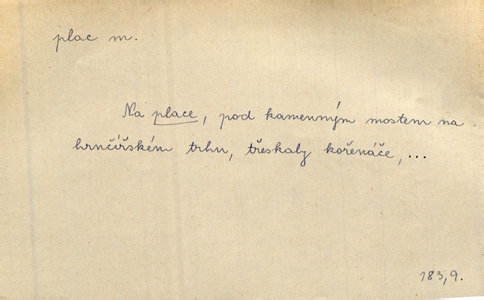 plac m.
Na place, pod kamenným mostem na
hrnčířském trhu, třeskaly kořenáče, ...
183,9.